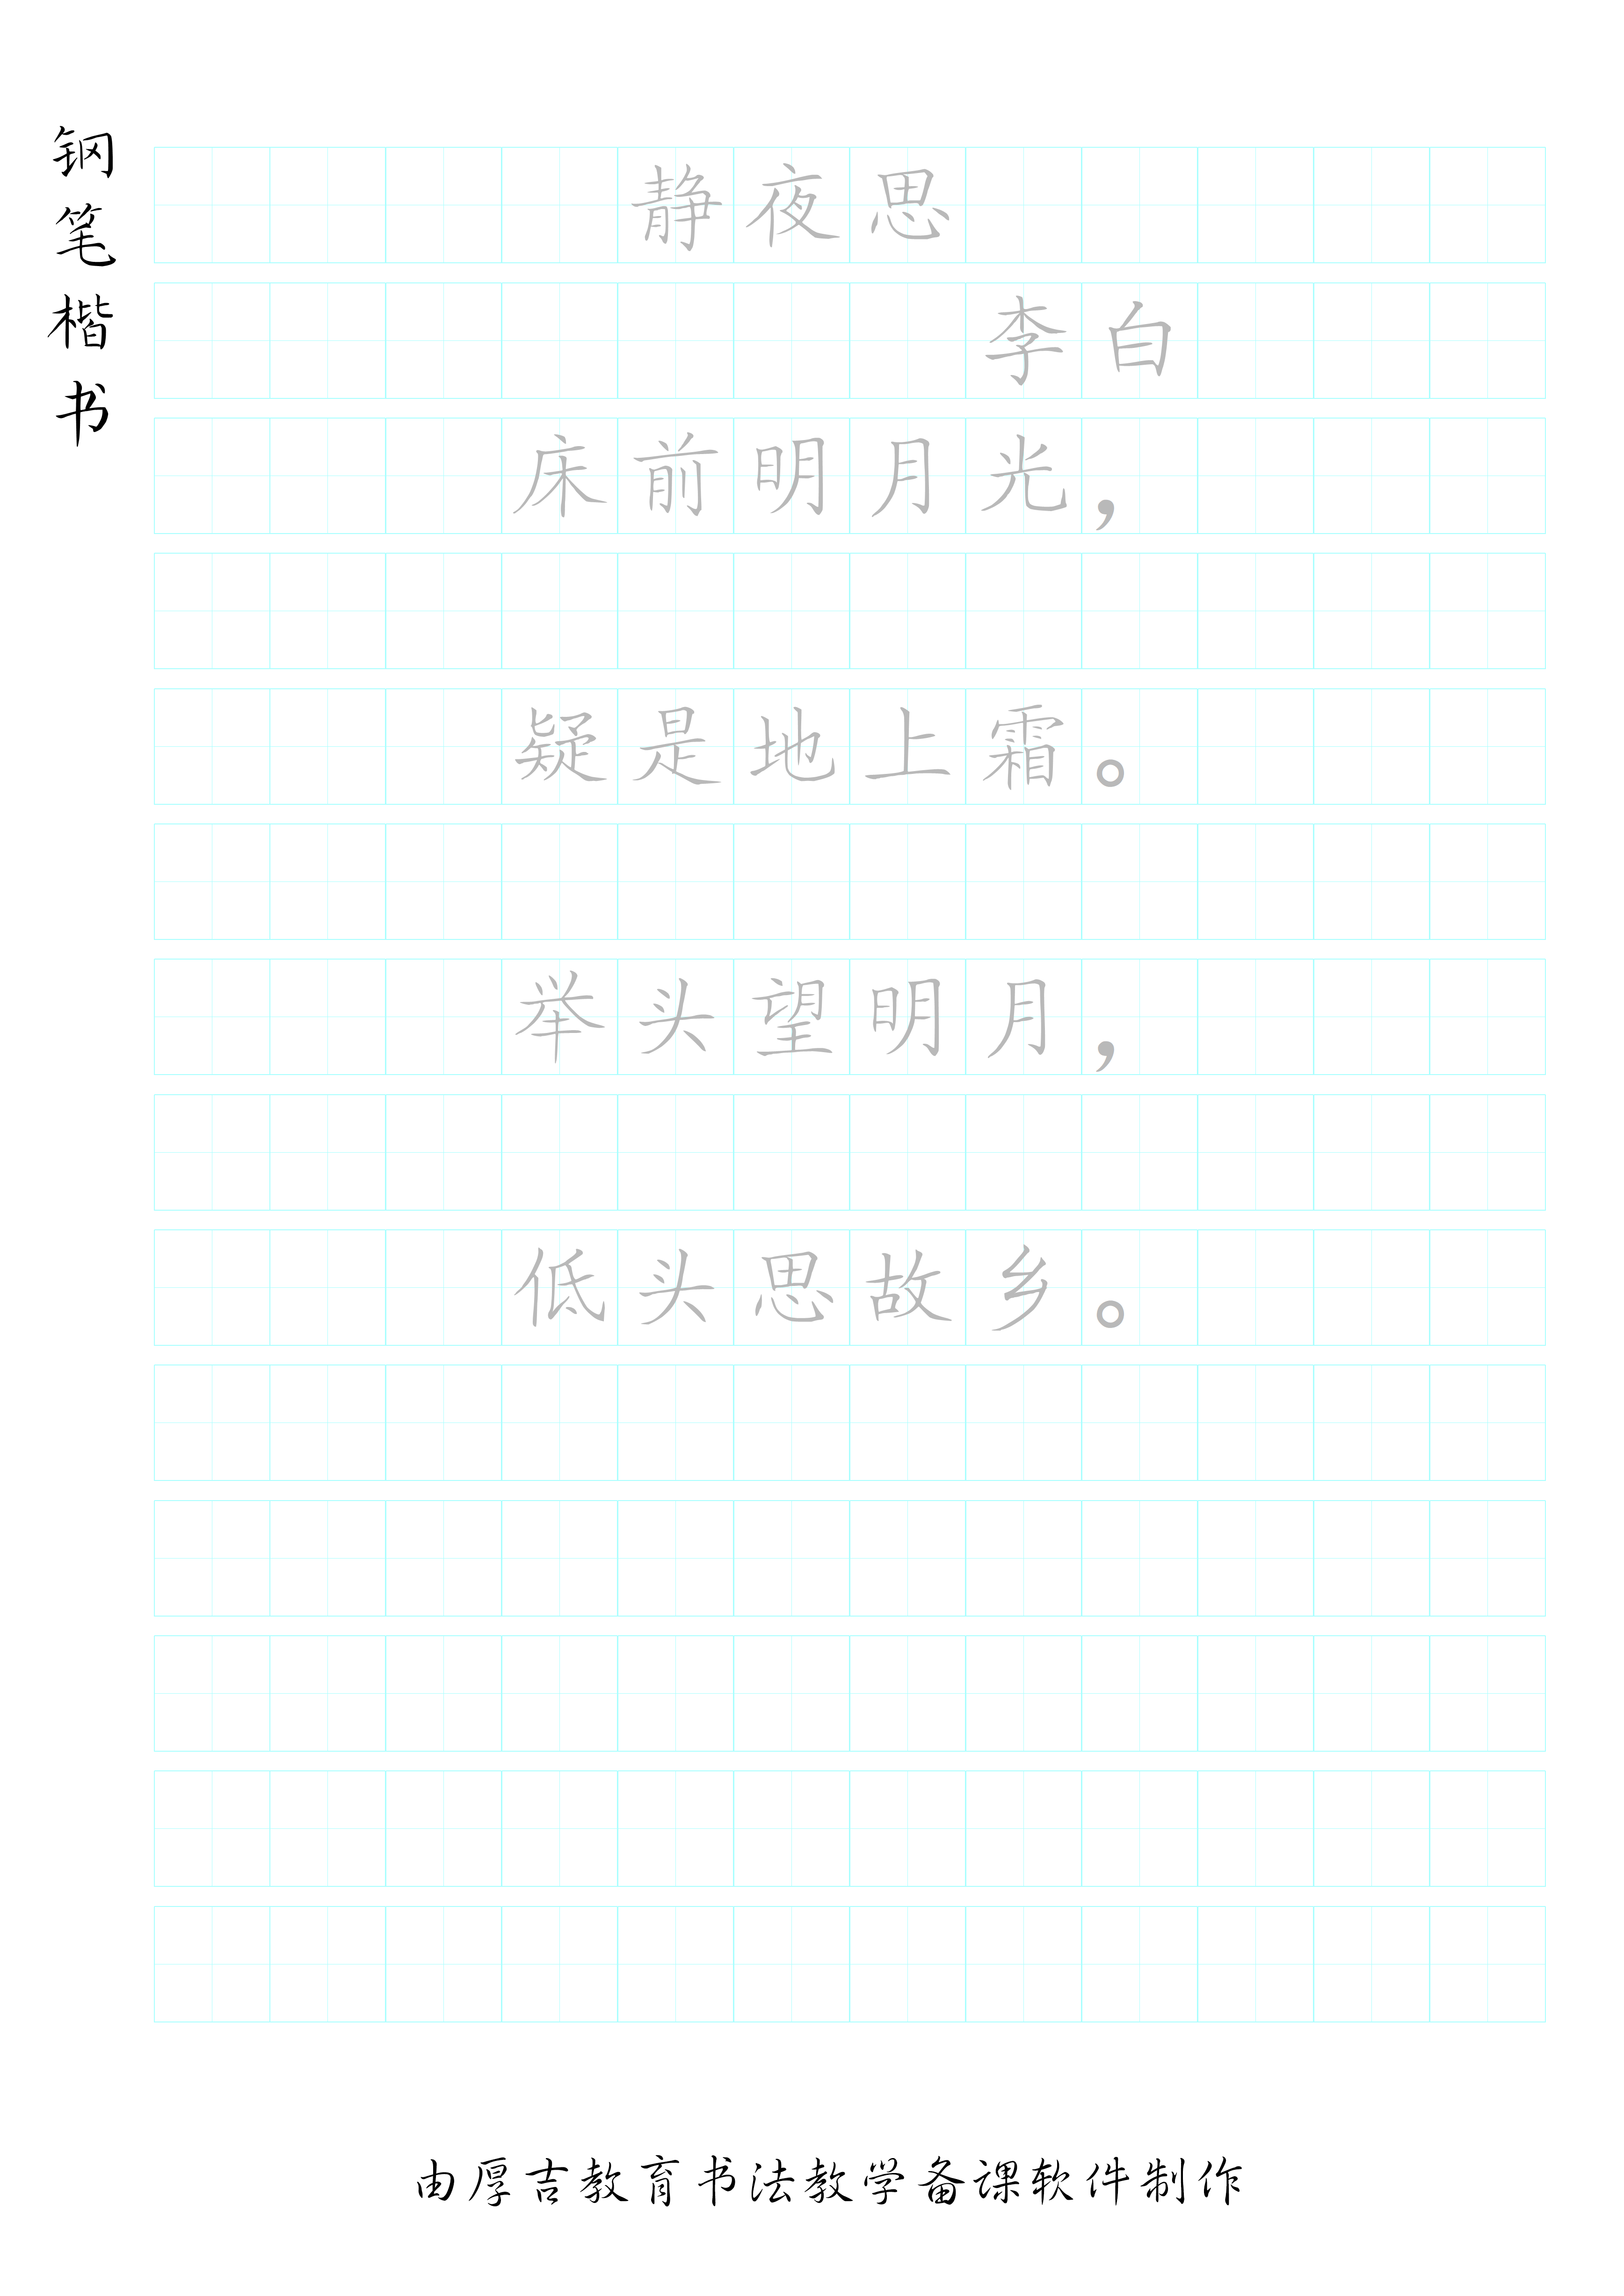 钢笔楷书
静夜思
李白
床前明月光，
疑是地上霜。
举头望明月，
低头思故乡。
由厚吉教育书法教学备课软件制作